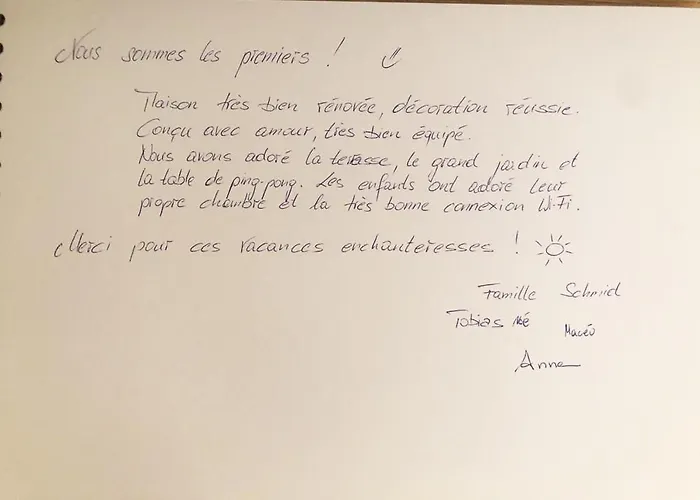 Nous sommes les premiers !
Maison très bien rénovée, décoration réussie.
Conçu avec amour, très bien équipé.
Nous avons adoré la terasse, le grand jardin et
la table de ping-pong. Les enfants ont adoré leur
propre chambre et la très bonne connexion Wi-Fi.
Merci pour ces vacances enchanteresses !
Famille Schmid
Tobias Noé Macéo
Anne